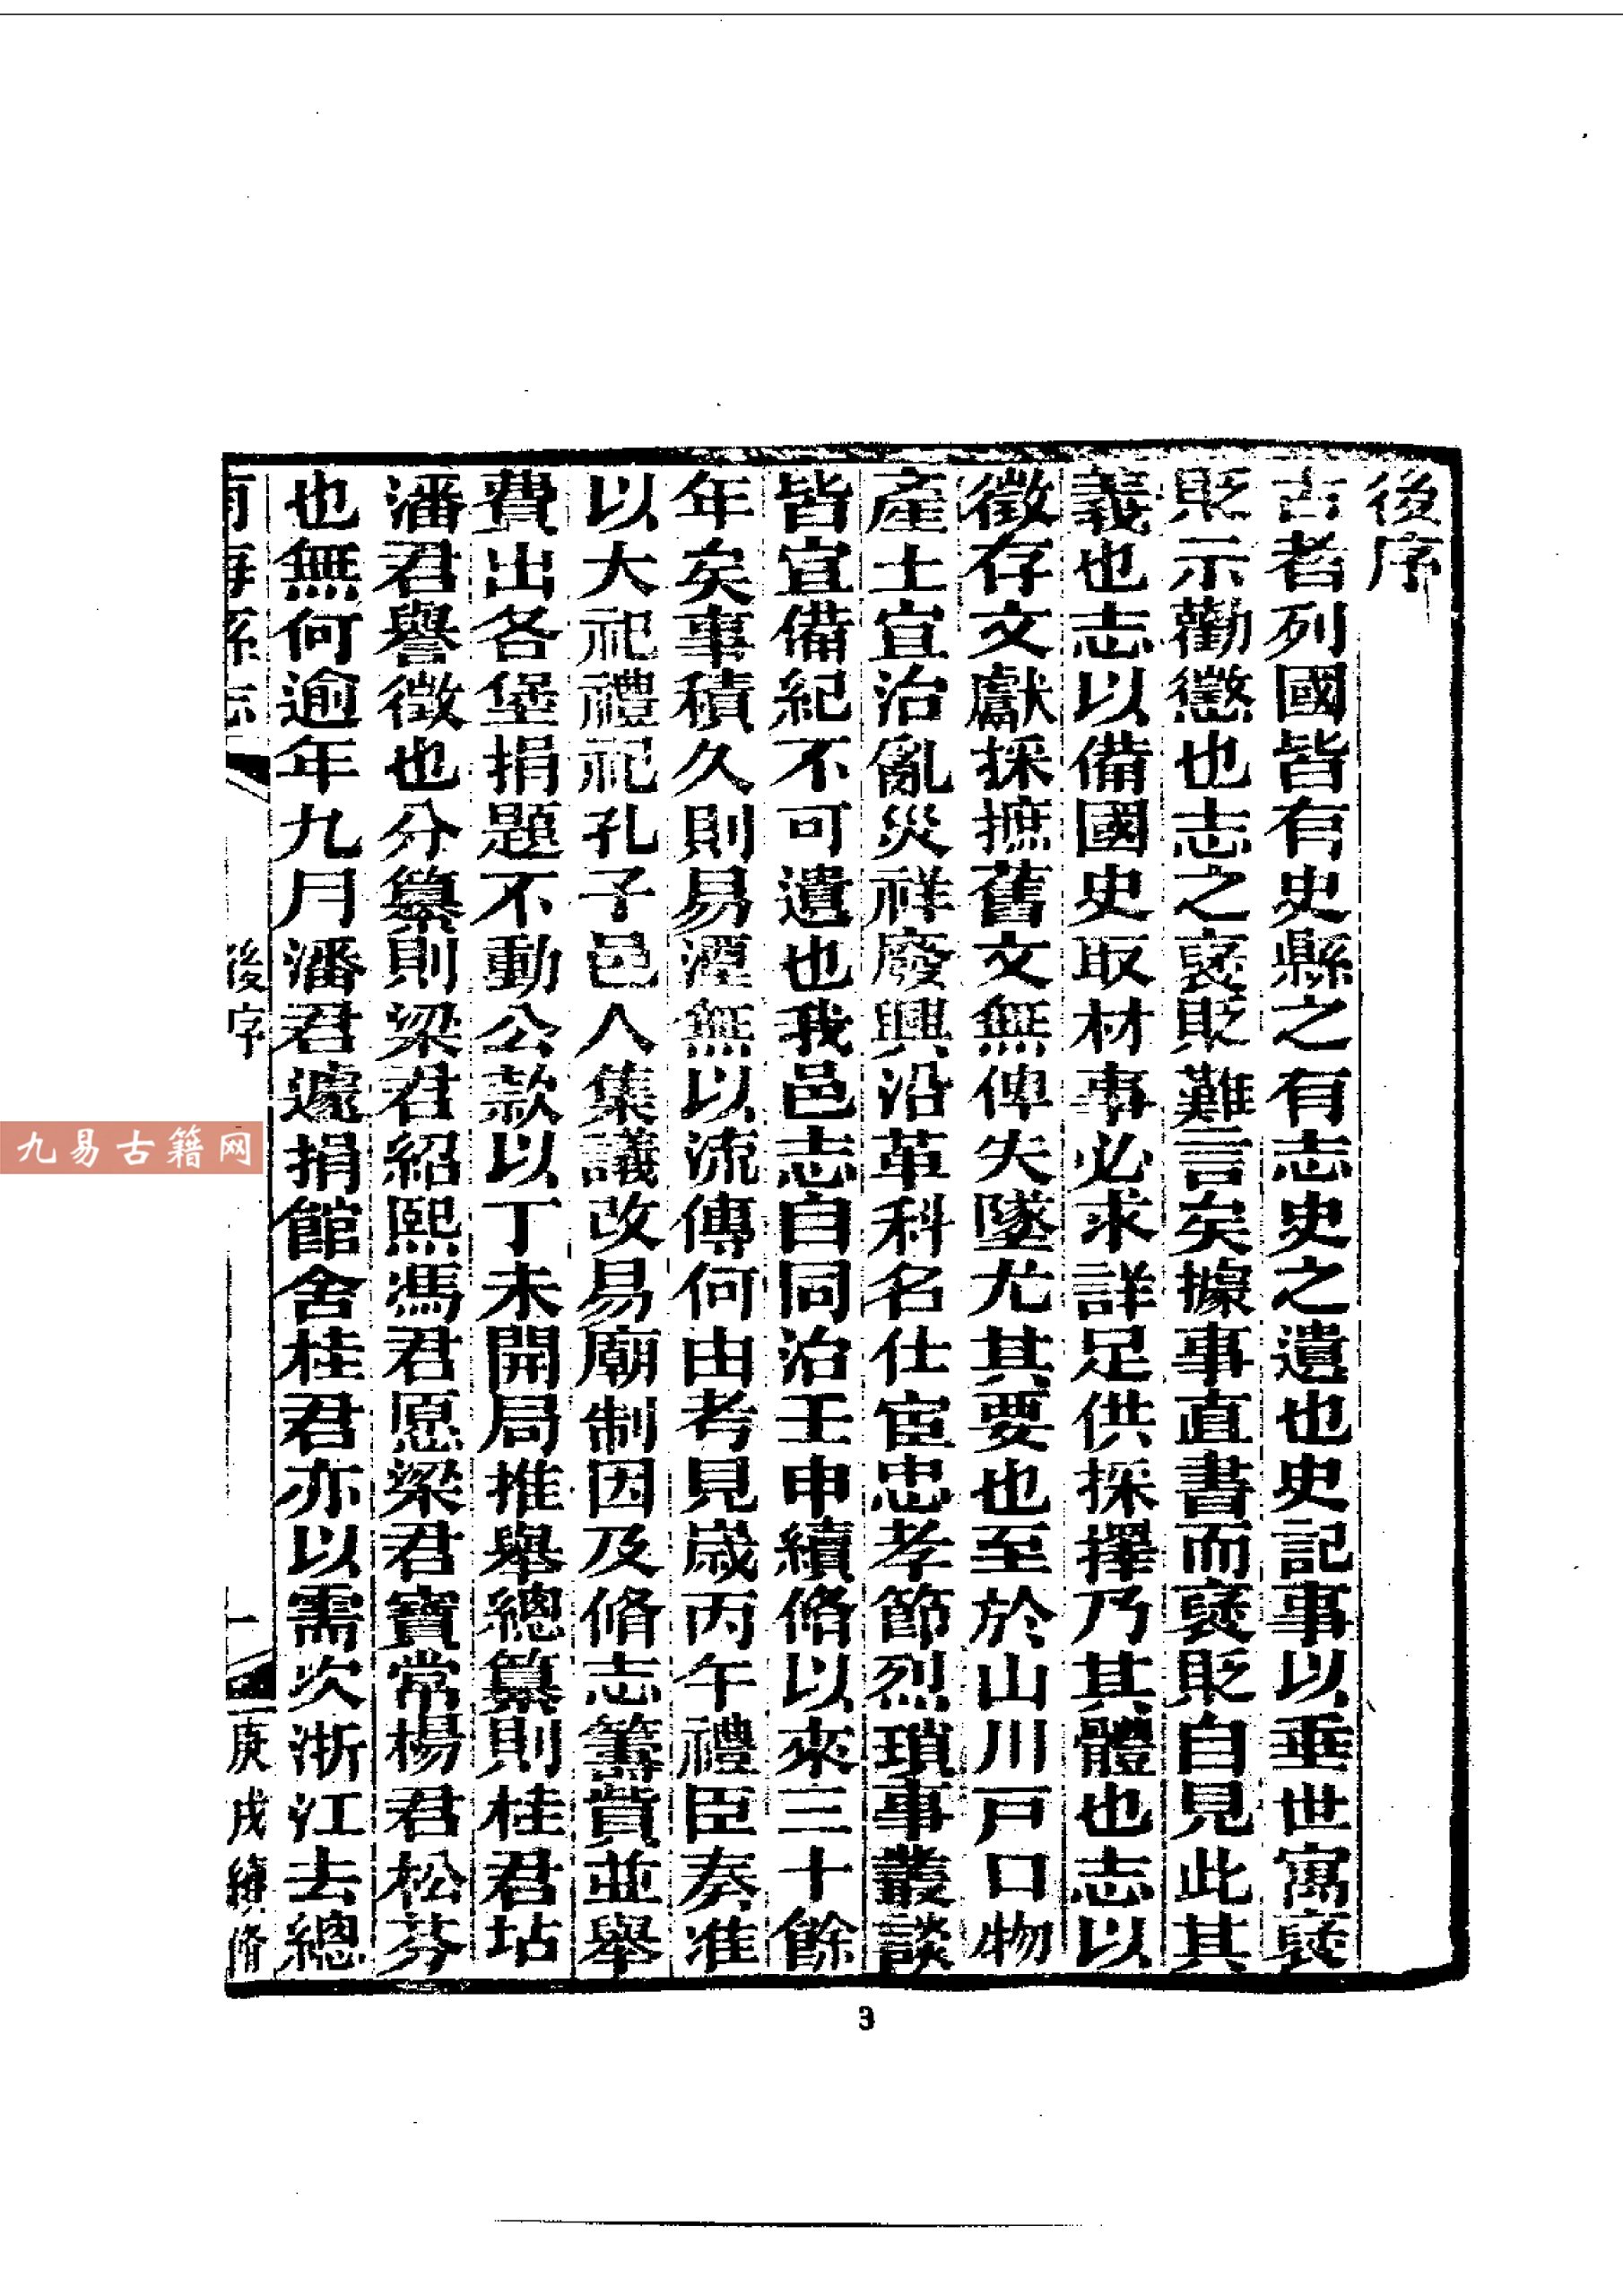 後序
古者列國皆有史縣之有志史之遺也史記事以垂世寓襃
貶示勸懲也志之襃貶難言矣據事直書而襃貶自見此其
義也志以備國史取材事必求詳足供採擇乃其體也志以
徵存文獻採摭舊文無俾失墜尤其要也至於山川戸口物
產土宜治亂災祥廢興沿革科名仕宦忠孝節烈瑣事叢談
皆宜備紀不可遺也我邑志自同治壬申續脩以來三十餘
年矣事積久則易湮無以流傳何由考見歲丙午禮臣奏准
以大祀禮祀孔子邑人集議改易廟制因及脩志籌貲並舉
費出各堡捐題不動公款以丁未開局推舉總纂則桂君坫
潘君譽徵也分纂則梁君紹熙馮君愿梁君寶常楊君松芬
也無何逾年九月潘君遽捐館舍桂君亦以需次浙江去總
南海縣志
後序
一
庚戌續脩
3
九易古籍网